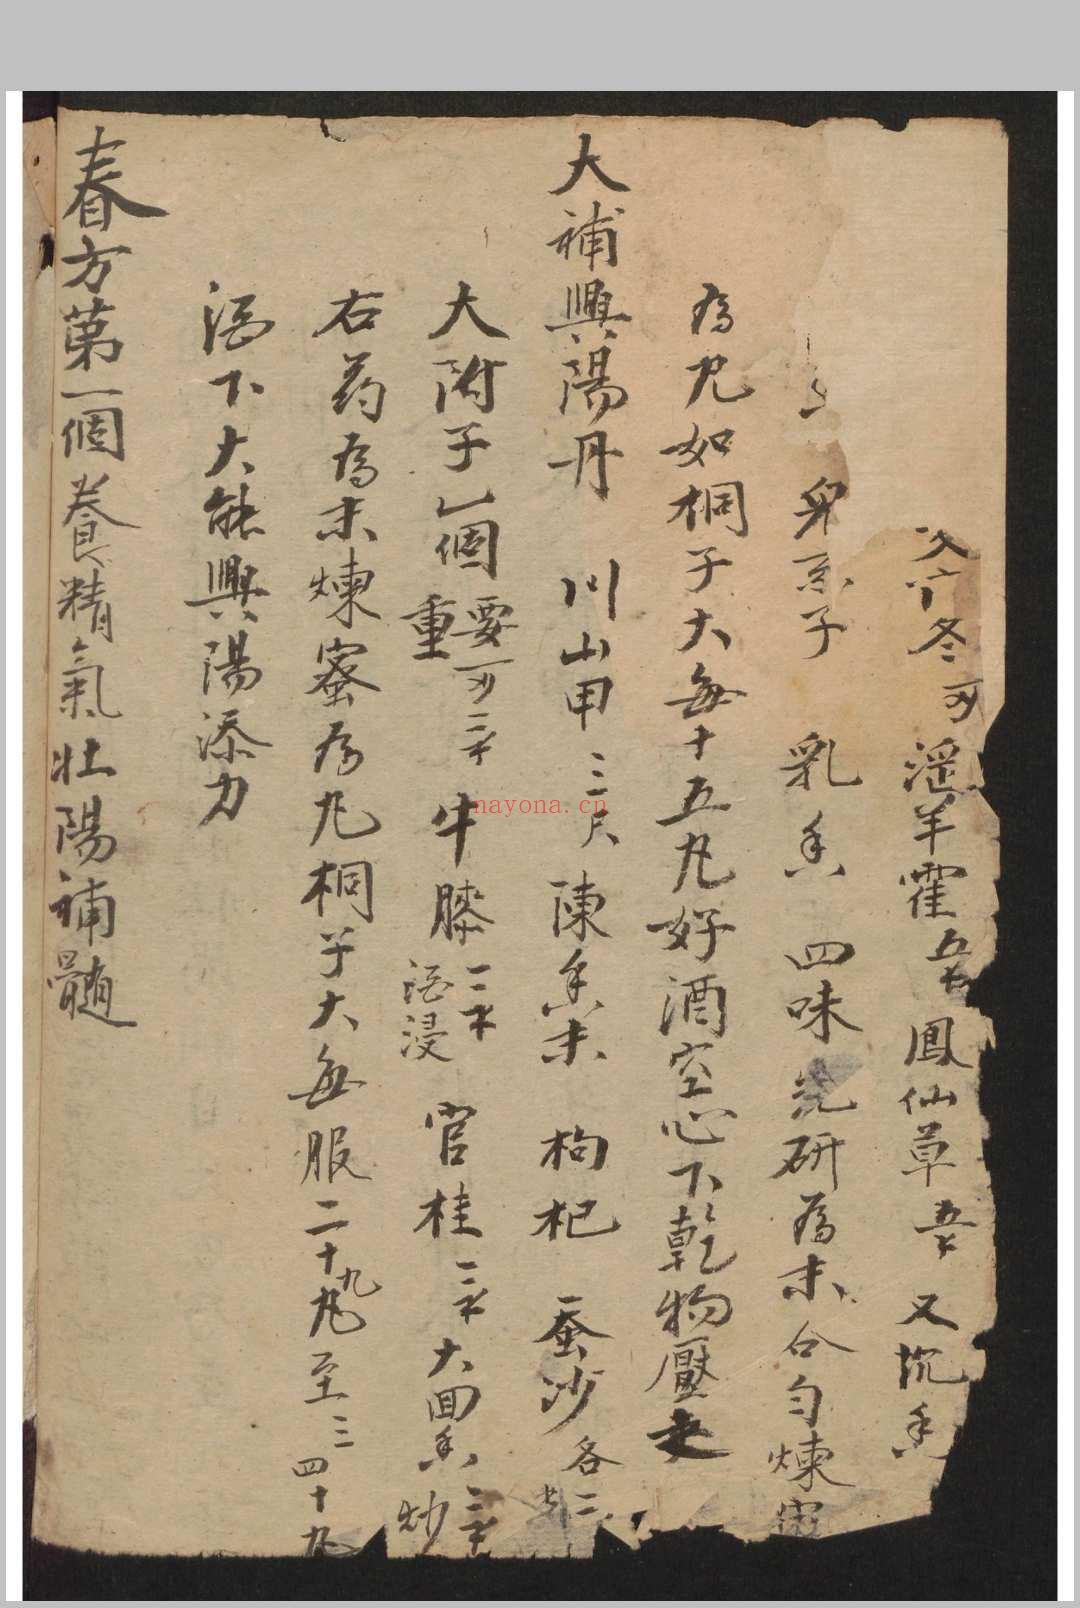 冬 淫羊藿 鳳仙草 又沉香
子 乳香 四味 研為末合匀煉
為丸如桐子大每十五丸好酒空心下乾物壓之
大補興陽丹 川山甲 陳香末 枸杞 蚕沙各二
大附子一個 要重 牛膝 酒浸 官桂 大茴香 炒
右药為末煉蜜為丸桐子大每服二十九丸至三四十丸
酒下大能興陽添力
春方第一個養精氣壯陽補髓
nayona.cn